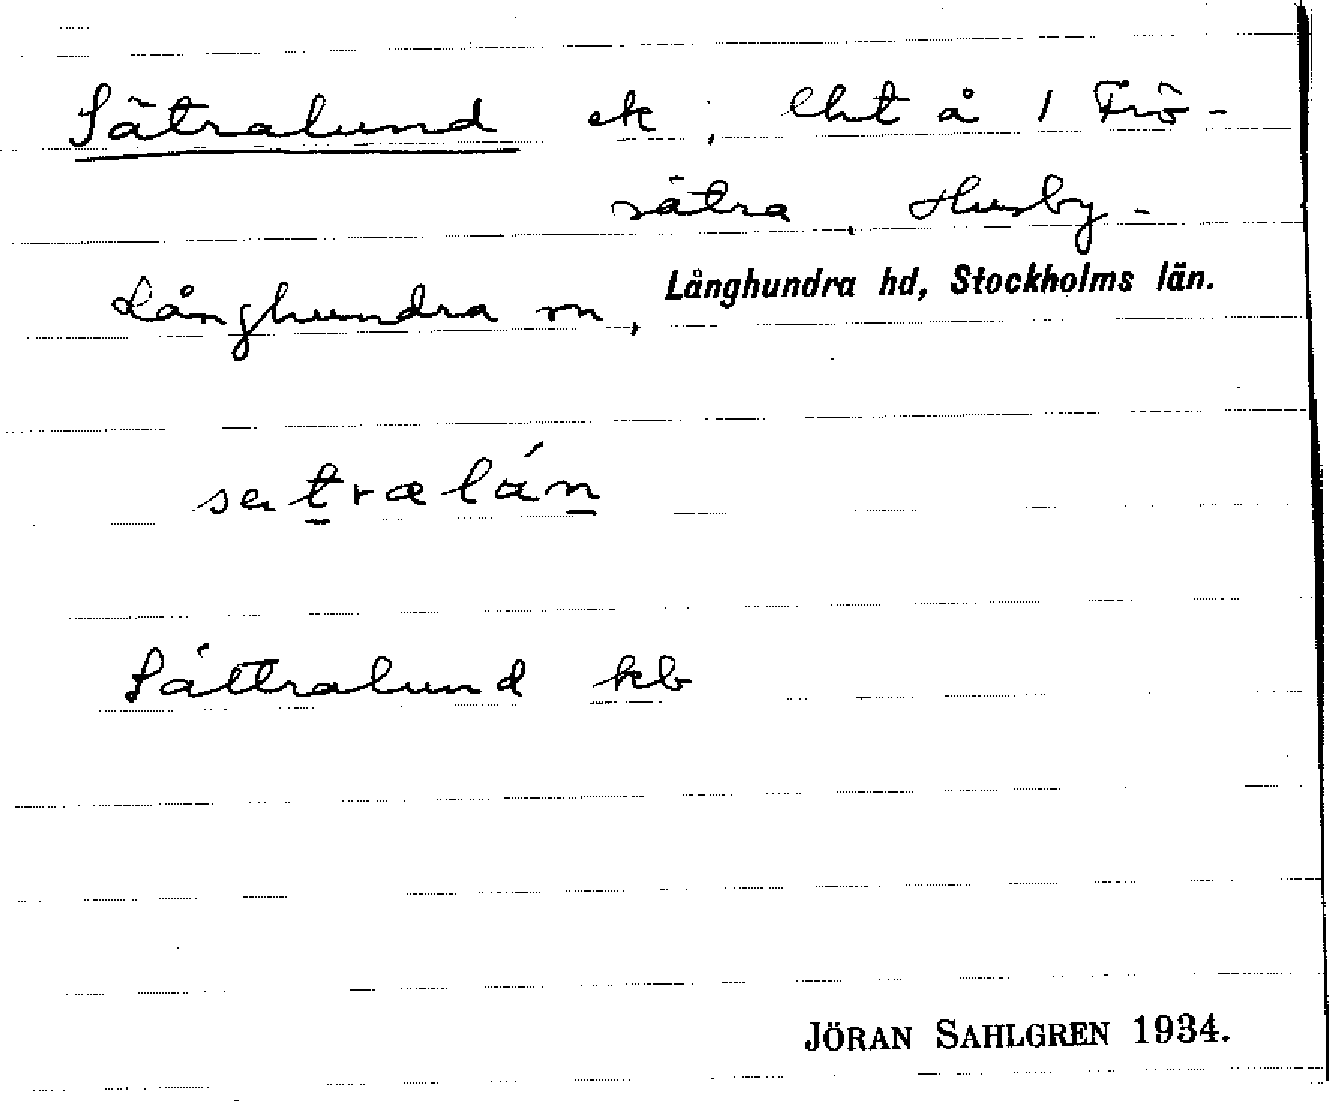 Sätralund ek, lht å 1 Frö-
sätra, Husby-
Långhundra sn, Långhundra hd, Stockholms län.
Sättralund kb
JÖRAN SAHLGREN 1934.